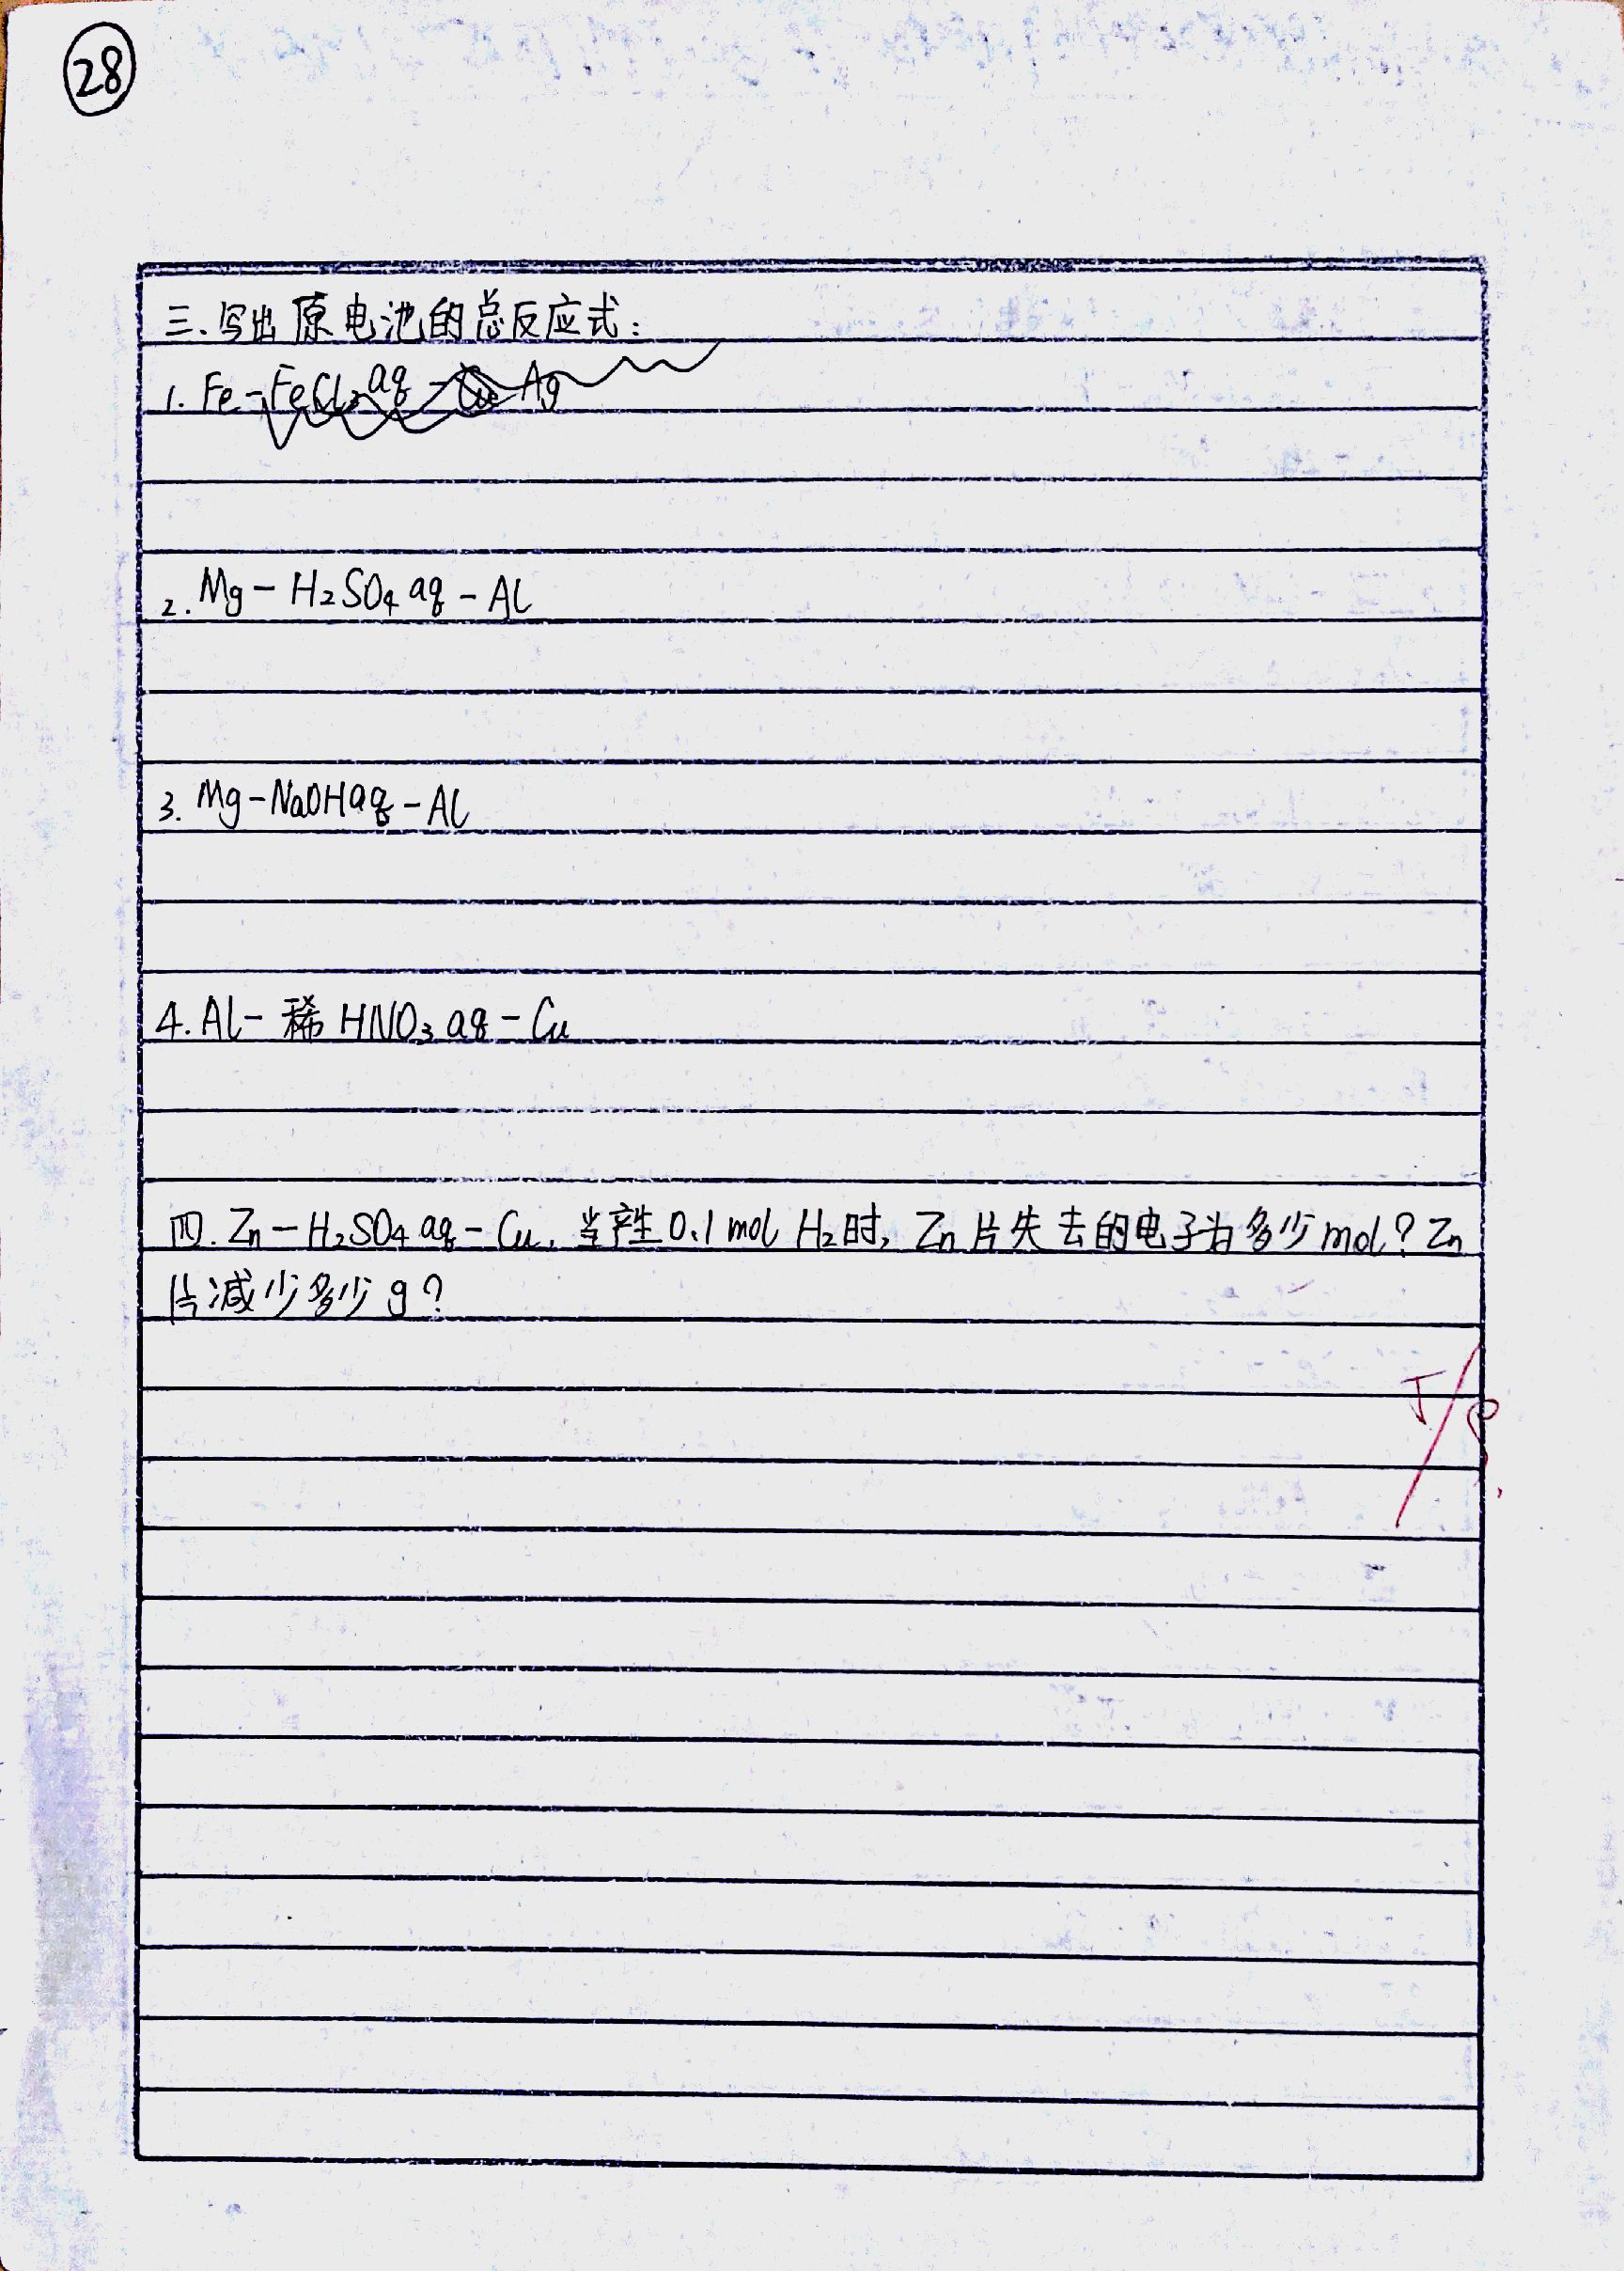 28
三.写出原电池的总反应式:
1. Fe-FeCl₃aq-Ag
2. Mg-H₂SO₄aq-Al
3. Mg-NaOHaq-Al
4. Al-稀HNO₃aq-Cu
四. Zn-H₂SO₄aq-Cu, 当产生0.1mol H₂时, Zn片失去的电子为多少mol? Zn
片减少多少g?